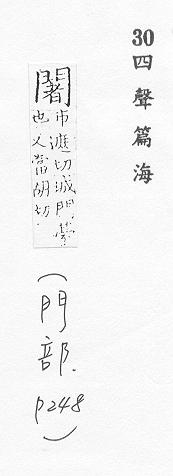 30四聲篇海
闍市遮切城門臺
也又當胡切
(門部.p248)